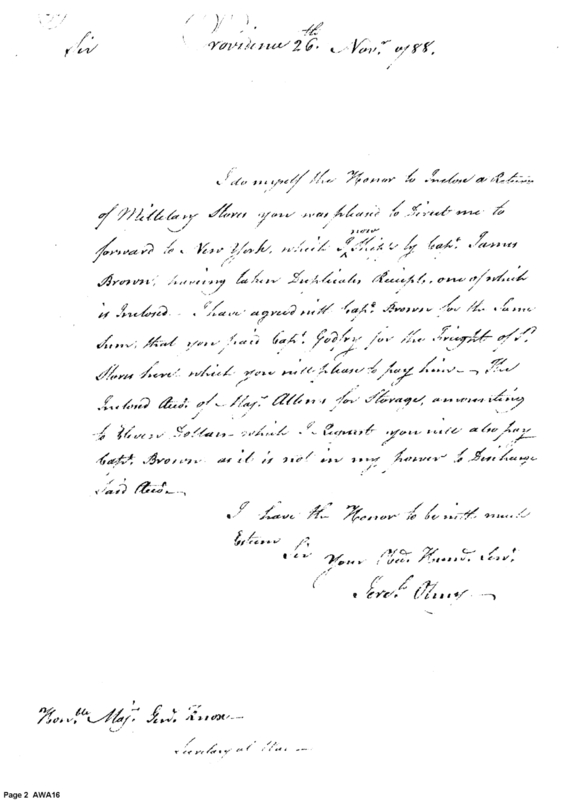 Sir Providence 26th. Novr. 1788.
I do myself the Honor to Inclose a Return
of Milletary Stores you was pleasd to Direct me to
forward to New York, which I now Shipt by Capt. James
Brown, having taken Duplicates Receipts, one of which
is Inclosed. I have agreed with Capt. Brown for the Same
Sum, that you paid Capt. Godfry for the Frieght of Sd.
Stores here which you will please to pay him — The
Inclosd Acct. of Majr. Allens for Storage, amounting
to Eleven Dollars which I Request you will also pay
Capt. Brown as it is not in my power to Discharge
Said Acct. —
I have the Honor to be with much
Esteem
Sir
Your Obd. Humb. Servt.
Jereh. Olney —
Honble. Majr. Genl. Knox —
Secretary at War —
Page 2 AWA16